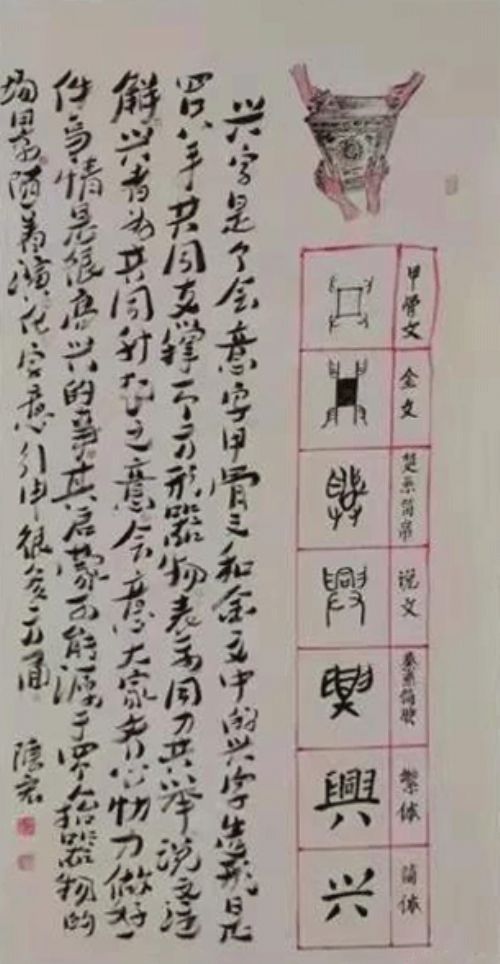 甲骨文
金文
楚系简帛
说文
秦系简牍
繁体 興
简体 兴
兴字是个会意字甲骨文和金文中的兴字造形是
四只手共同支撑一个方形器物表示同力共举说文注
解兴者为共同升起之意会意大家齐心协力做好一
件事情是很高兴的事其启蒙可能源于四人抬器物的
场景随着演化字意引申很多方面